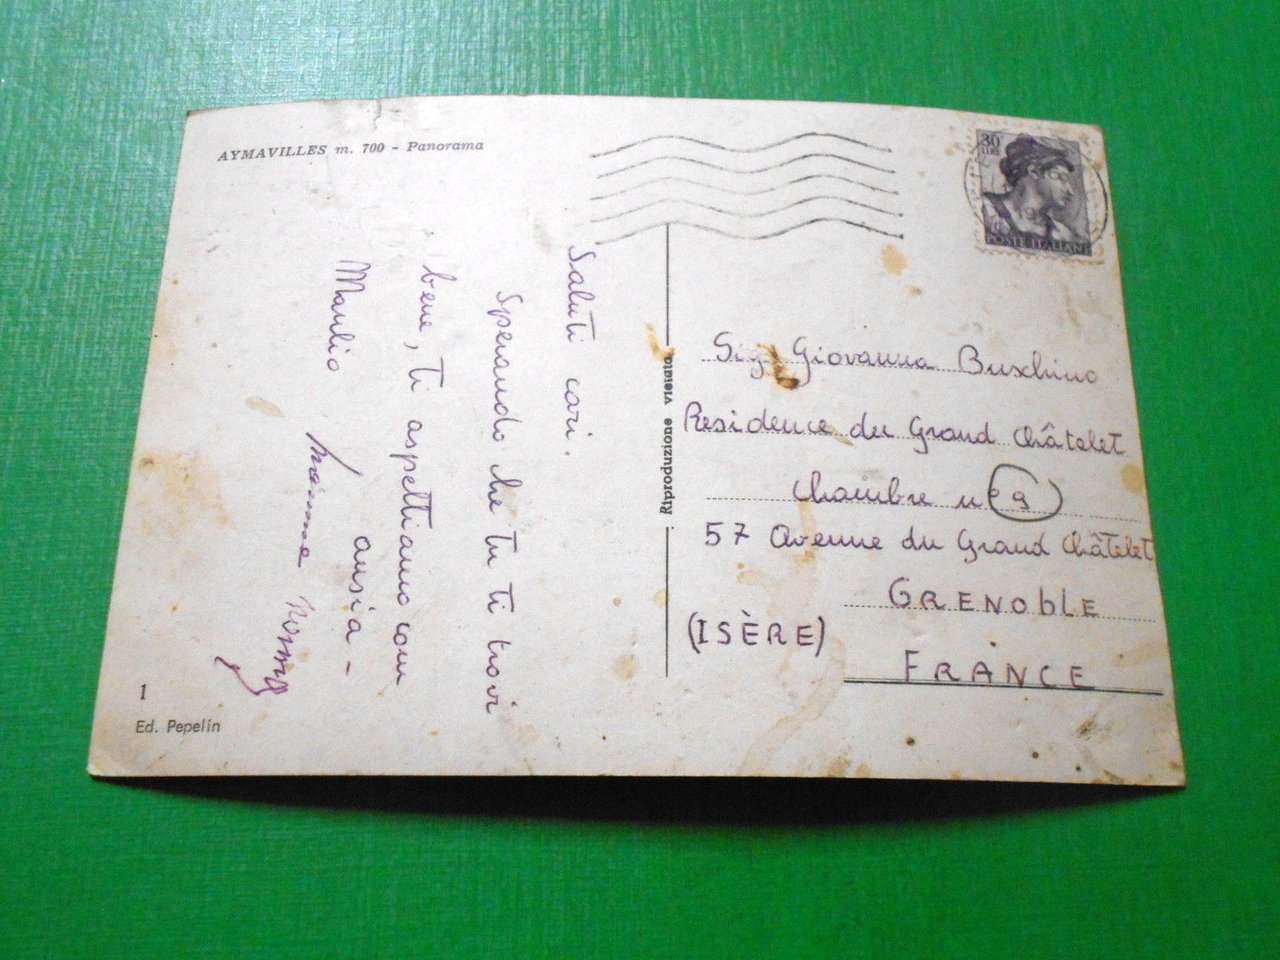 AYMAVILLES m. 700 - Panorama
30
LIRE
POSTE ITALIANE
Saluti cari.
Sperando che tu ti trovi
bene, ti aspettiamo con
ansia -
Manlio
mamma Nonna
Riproduzione vietata
Sig. Giovanna Buschino
Residence du Grand Châtelet
Chambre n° 9
57 Avenue du Grand Châtelet
GRENOBLE
(ISÈRE)
FRANCE
1
Ed. Pepelin